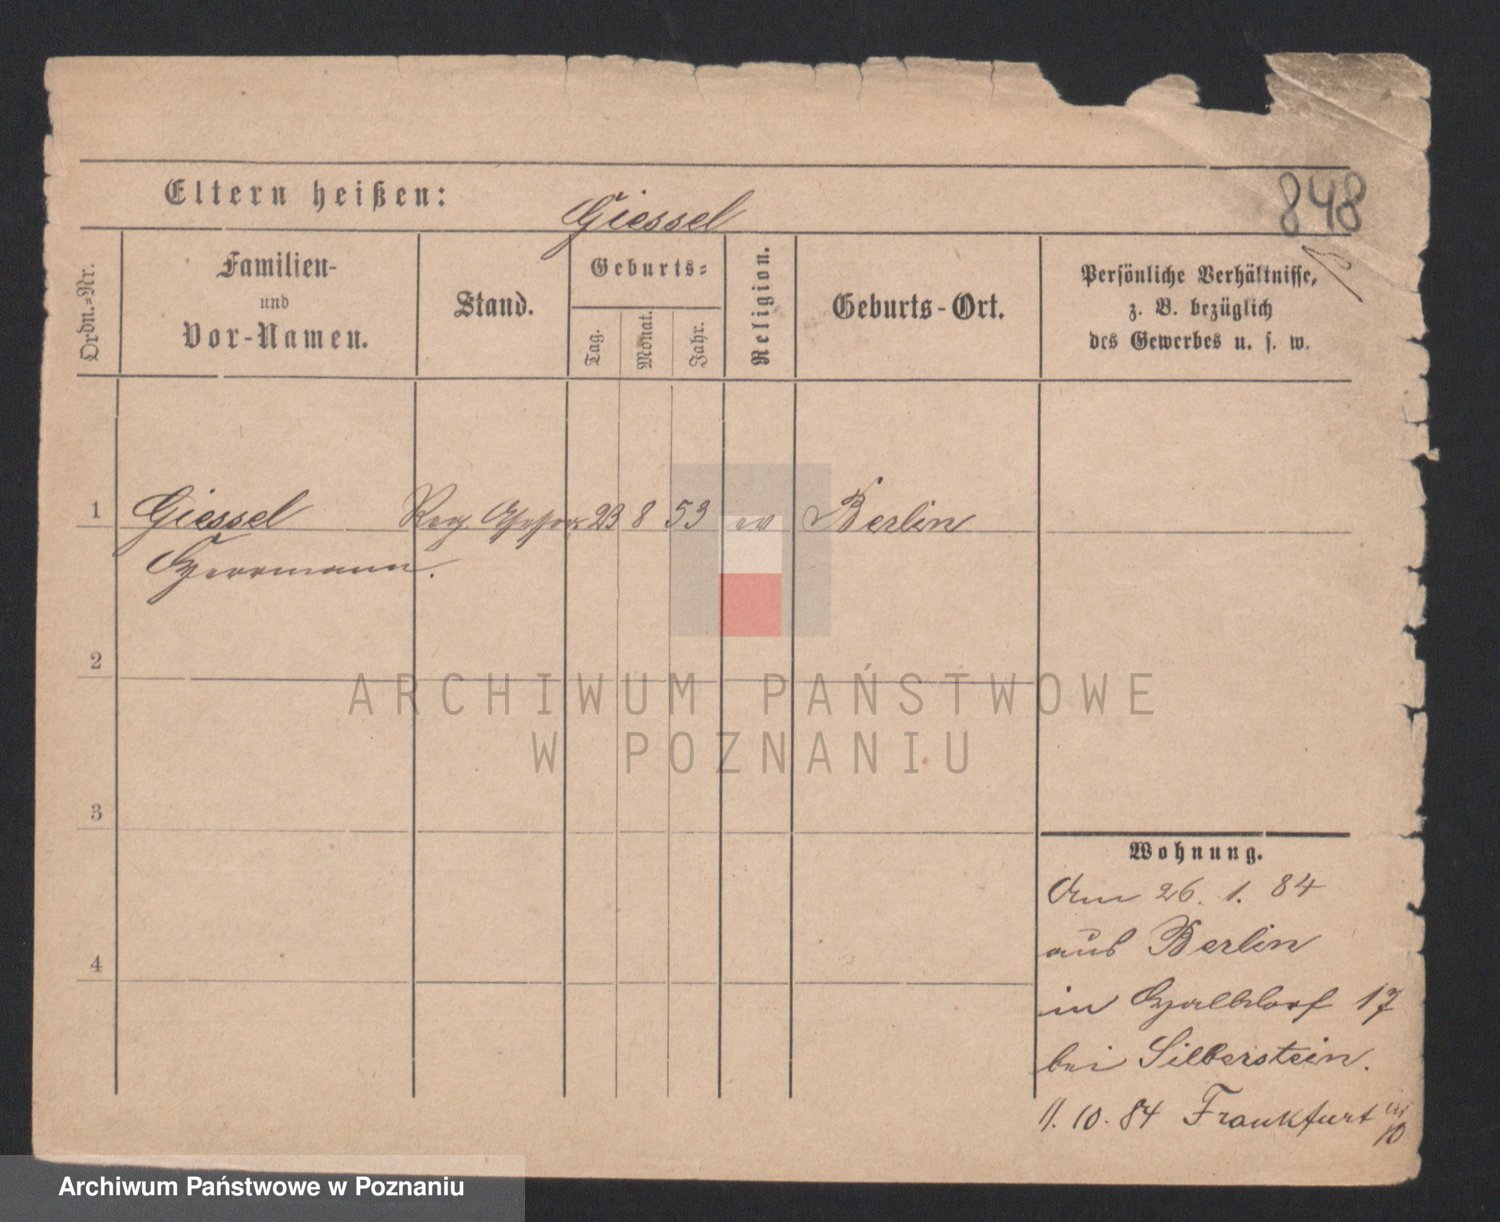 848
Eltern heißen:
Giessel
Ordn.=Nr.
Familien-
und
Vor-Namen.
Stand.
Geburts=
Tag.
Monat.
Jahr.
Religion.
Geburts-Ort.
Persönliche Verhältnisse,
z. B. bezüglich
des Gewerbes u. s. w.
1 Giessel Reg. Assessor 23 8 53 ev Berlin
Herrmann.
2
3
4
Wohnung.
Am 26. 1. 84
aus Berlin
in Halbdorf 17
bei Silberstein.
11. 10. 84 Frankfurt
ARCHIWUM PAŃSTWOWE
W POZNANIU
Archiwum Państwowe w Poznaniu